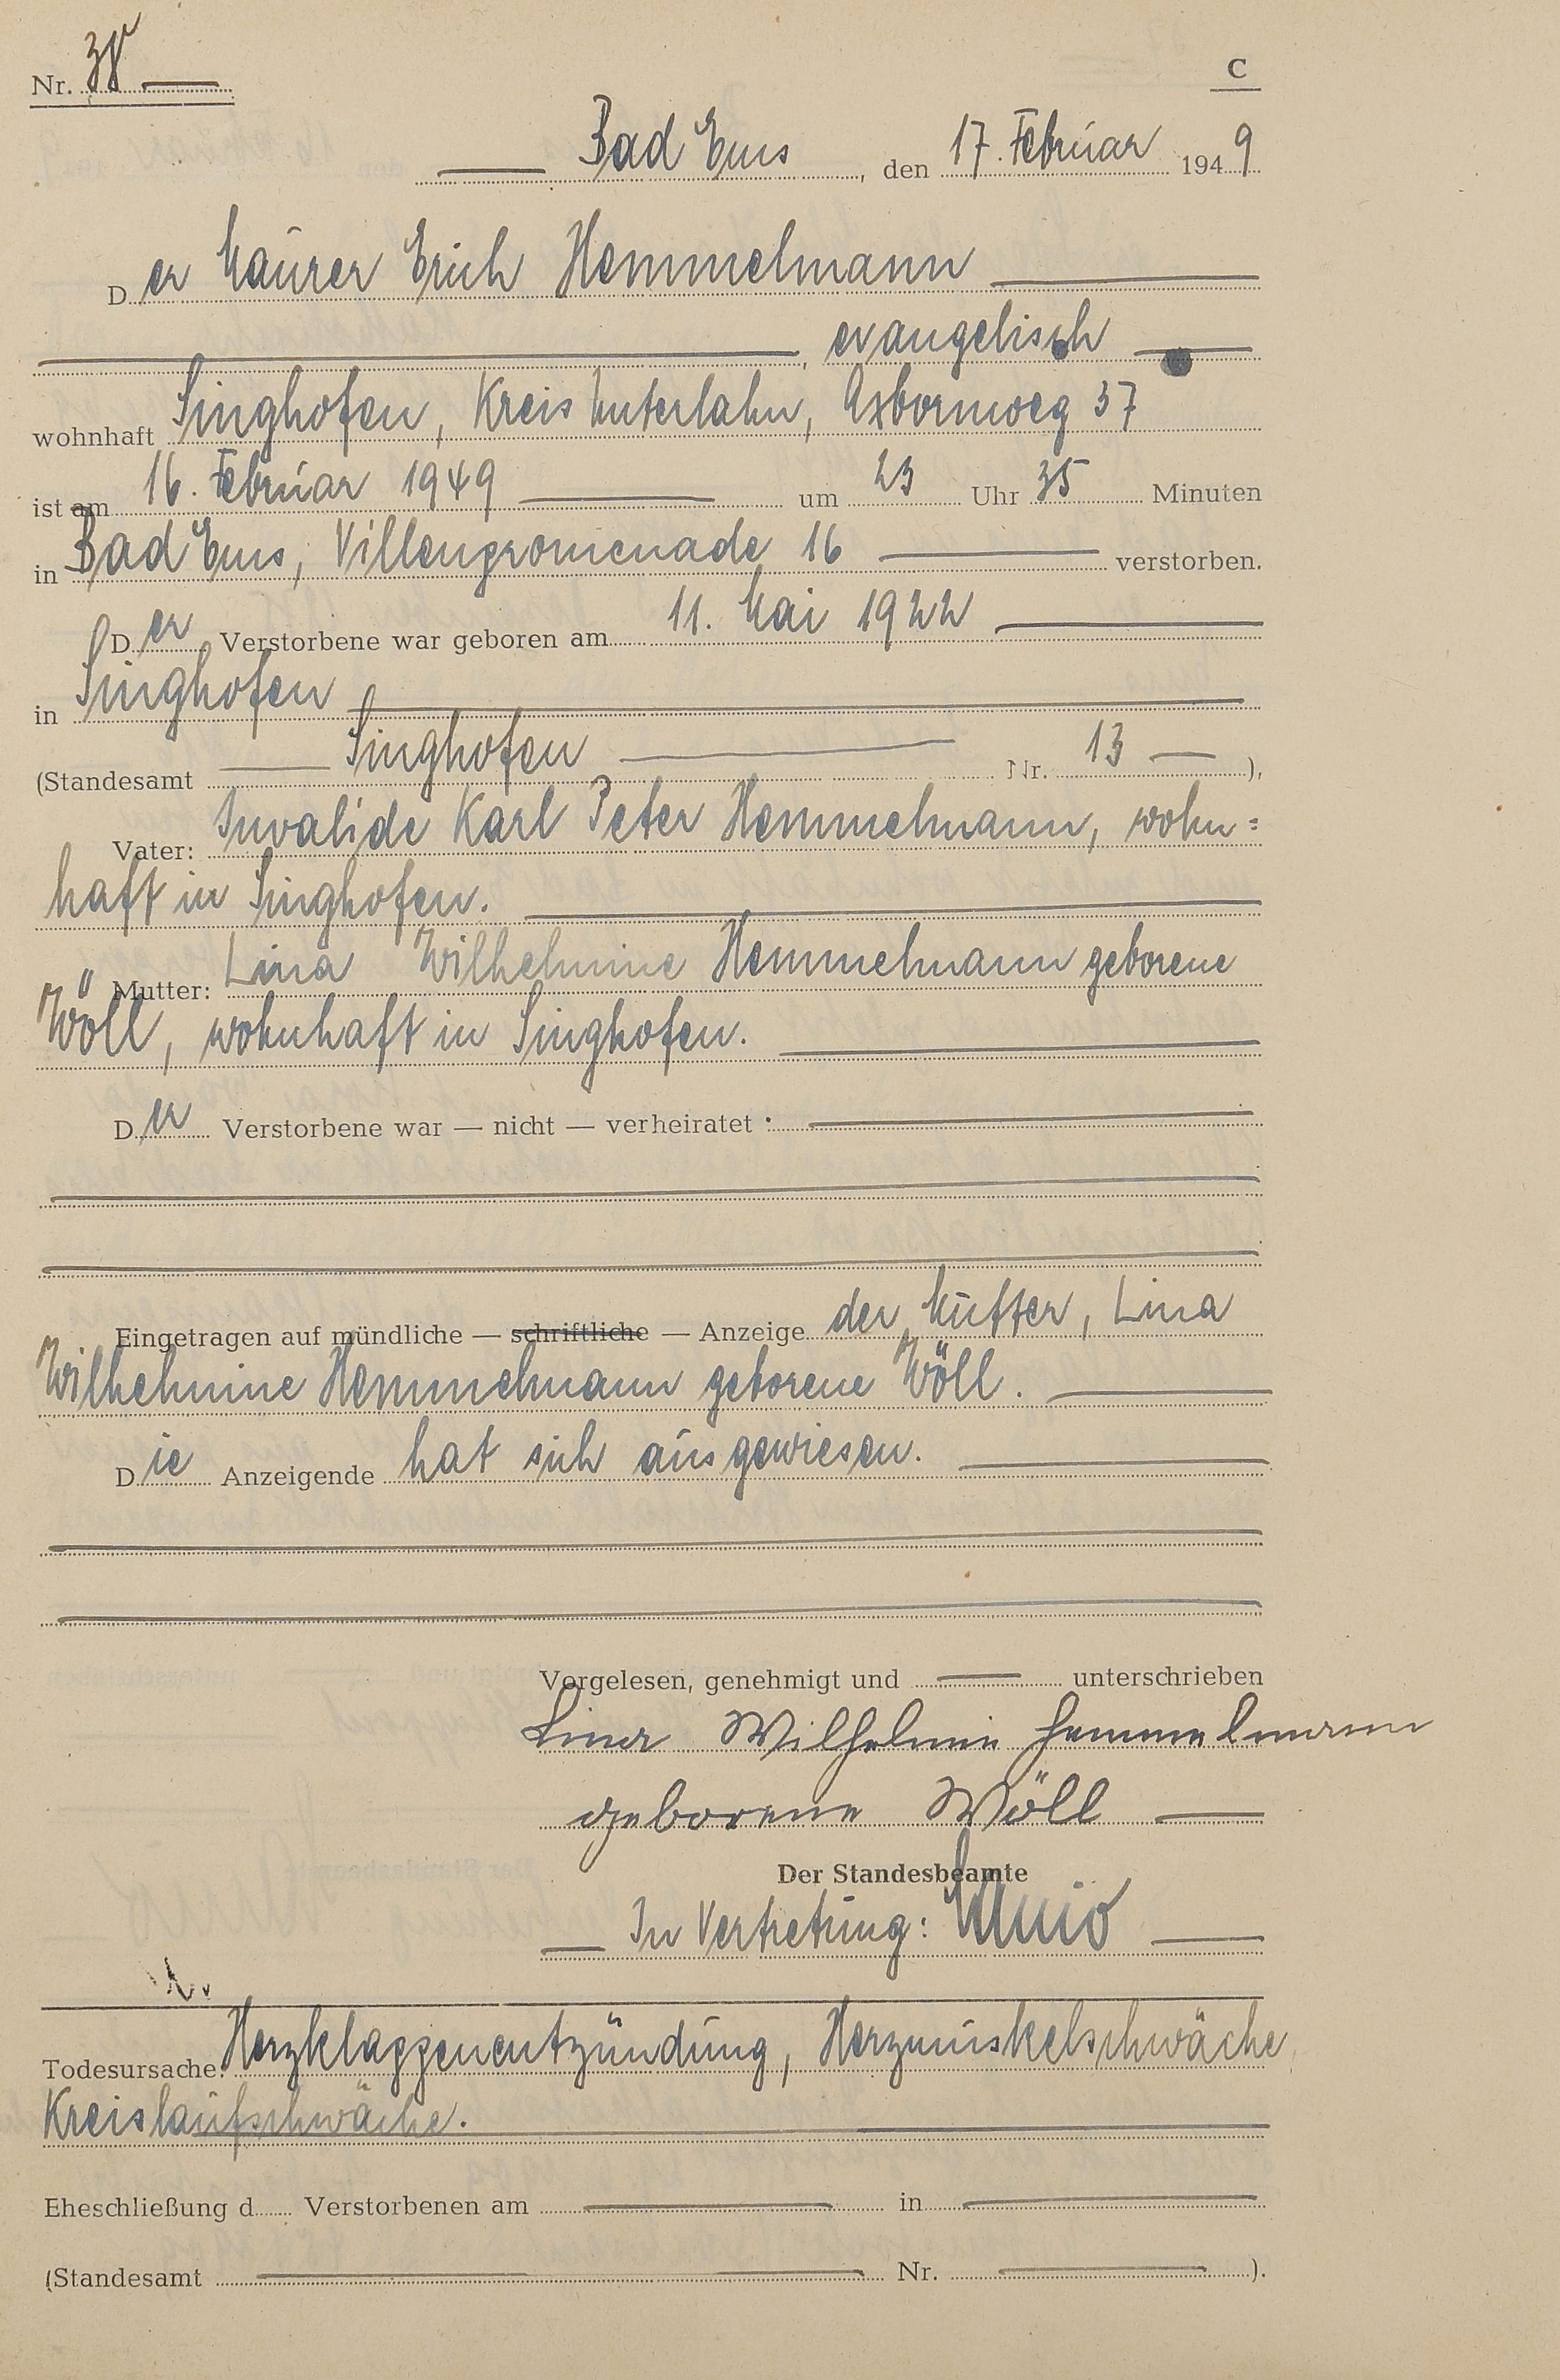 Nr. 38
C
Bad Ems, den 17. Februar 1949
Der Maurer Erich Hemmelmann
, evangelisch
wohnhaft Singhofen, Kreis Unterlahn, Axbornweg 37
ist am 16. Februar 1949 um 23 Uhr 35 Minuten
in Bad Ems, Villenpromenade 16 verstorben.
Der Verstorbene war geboren am 11. Mai 1922
in Singhofen
(Standesamt Singhofen Nr. 13 ),
Vater: Invalide Karl Peter Hemmelmann, wohn=
haft in Singhofen.
Mutter: Lina Wilhelmine Hemmelmann geborene
Wöll, wohnhaft in Singhofen.
Der Verstorbene war — nicht — verheiratet .
Eingetragen auf mündliche — schriftliche — Anzeige der Mutter, Lina
Wilhelmine Hemmelmann geborene Wöll.
Die Anzeigende hat sich ausgewiesen.
Vorgelesen, genehmigt und unterschrieben
Lina Wilhelmine Hemmelmann
geborene Wöll
Der Standesbeamte
In Vertretung:
Todesursache: Herzklappenentzündung, Herzmuskelschwäche,
Kreislaufschwäche.
Eheschließung d Verstorbenen am in
(Standesamt Nr. ).